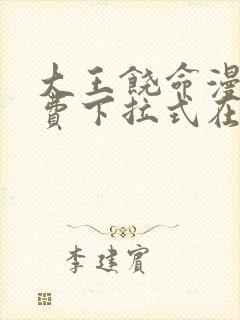 大王饶命漫
费下拉式在
李建宾